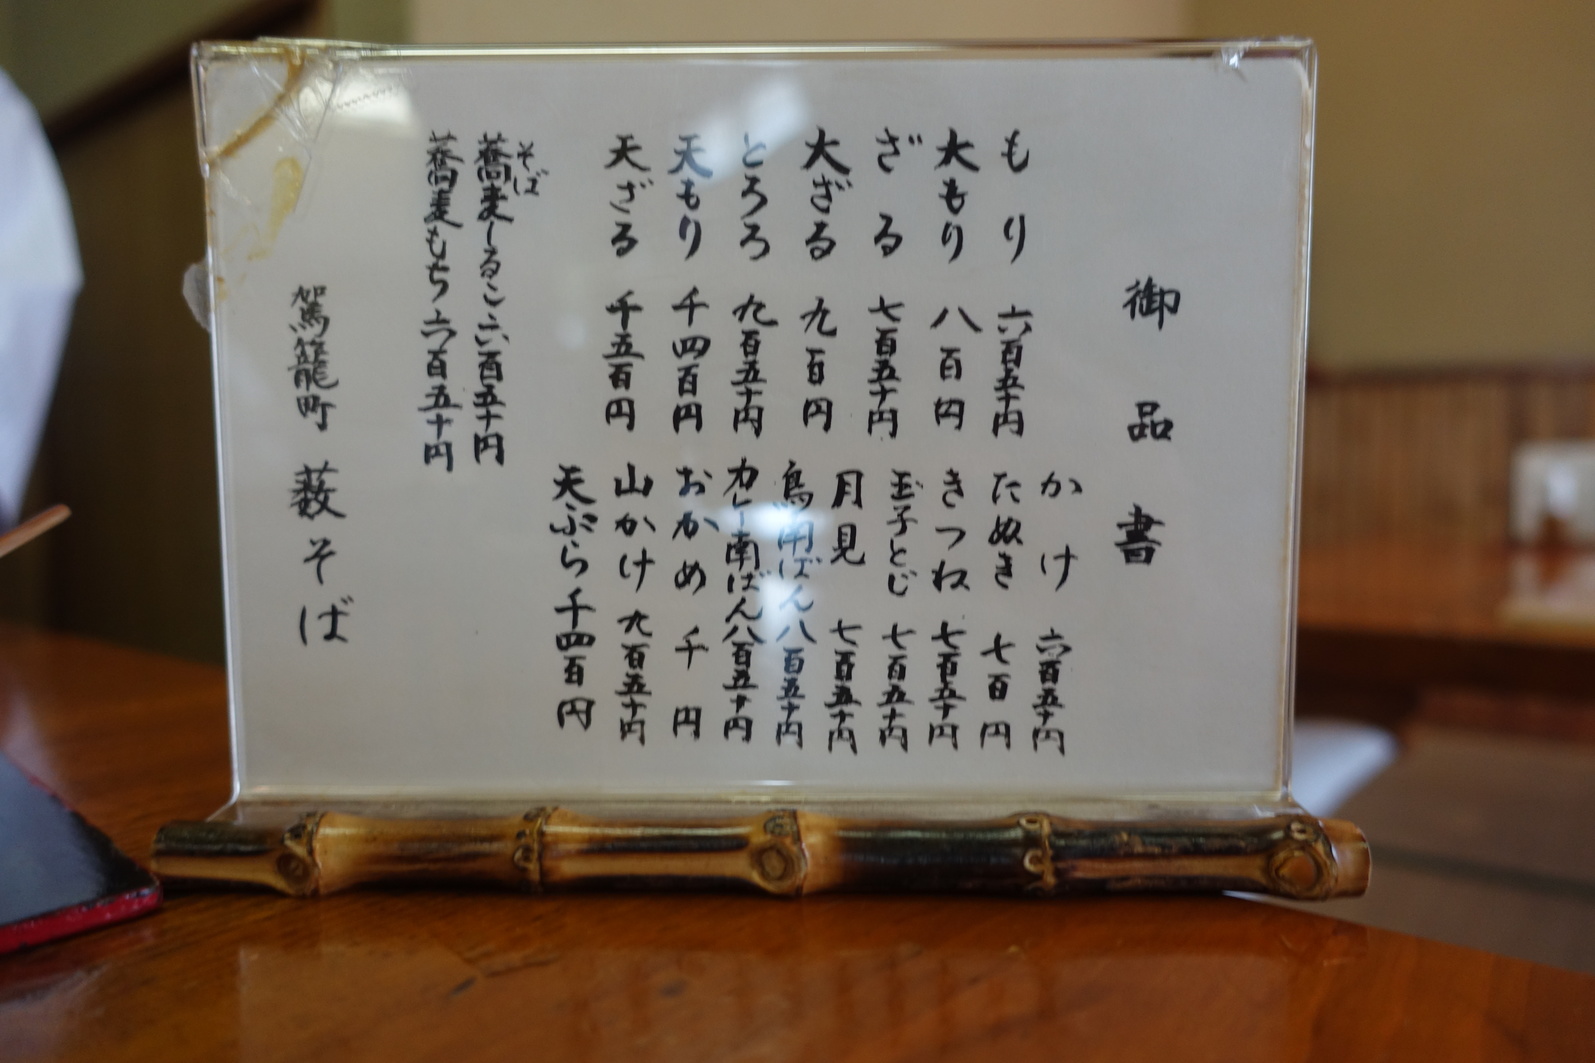 御品書
もり 六百五十円
大もり 八百円
ざる 七百五十円
大ざる 九百円
とろろ 九百五十円
天もり 千四百円
天ざる 千五百円
かけ 六百五十円
たぬき 七百円
きつね 七百五十円
玉子とじ 七百五十円
月見 七百五十円
鳥南ばん 八百五十円
カレー南ばん 八百五十円
おかめ 千円
山かけ 九百五十円
天ぷら 千四百円
そば
蕎麦しるこ 六百五十円
蕎麦もち 六百五十円
駕籠町 薮そば